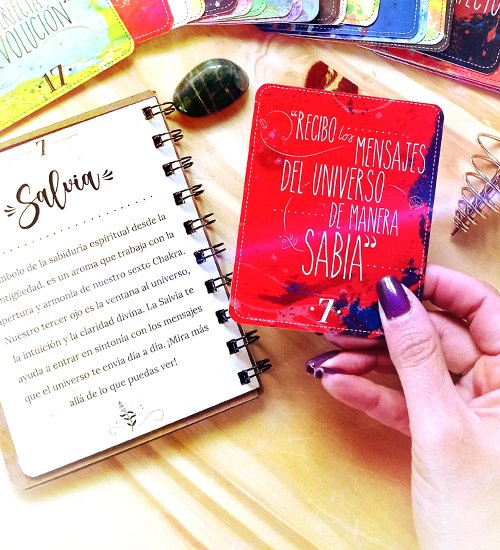 VOLUCIÓN
17
7
Salvia
mbolo de la sabiduría espiritual desde la
ntigüedad. es un aroma que trabaja con la
pertura y armonía de nuestro sexto Chakra.
Nuestro tercer ojo es la ventana al universo,
la intuición y la claridad divina. La Salvia te
ayuda a entrar en sintonía con los mensajes
que el universo te envia día a día. ¡Mira más
allá de lo que puedas ver!
"RECIBO los
MENSAJES
DEL UNIVERSO
DE MANERA
SABIA"
7